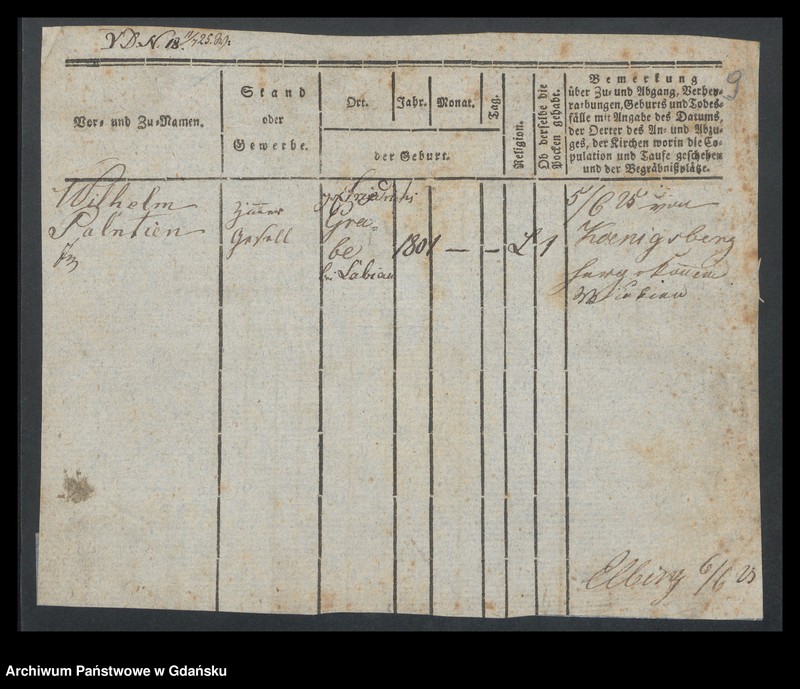 V. D. N. 18. 11/7 25.
9
Vor- und Zu-Namen.
Stand
oder
Gewerbe.
Ort.
Jahr.
Monat.
Tag.
der Geburt.
Religion.
Ob derselbe die
Pocken gehabt.
Bemerkung
über Zu- und Abgang, Verhey-
rathungen, Geburts und Todes-
fälle mit Angabe des Datums,
der Oerter des An- und Abzu-
ges, der Kirchen worin die Co-
pulation und Taufe geschehen
und der Begräbnißplätze.
Wilhelm
Palntien
Zimmer
Gesell
Gra-
be
bei Labiau
1801
—
—
L
1
5/6 25 von
Koenigsberg
Elbing 6/6 25
Archiwum Państwowe w Gdańsku